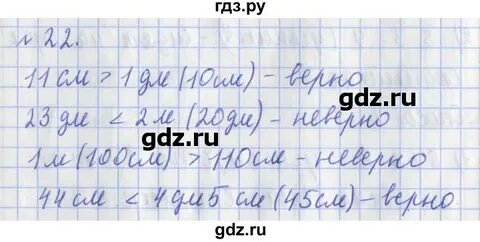 гдз.ру
№ 22.
11 см > 1 дм (10 см) - верно
gdz.ru
23 дм < 2 м (20 дм) - неверно
gdz.ru
1 м (100 см) > 110 см - неверно
44 см < 4 дм 5 см (45 см) - верно
gdz.ru